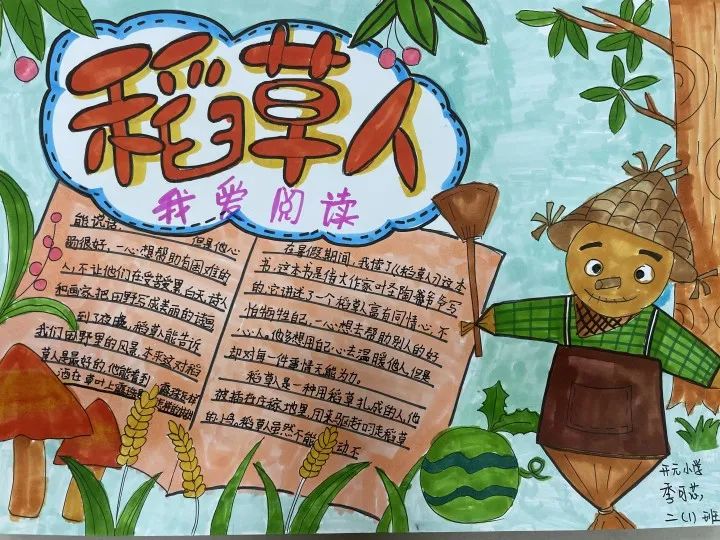 稻草人
我爱阅读
能说话，但是他心
肠很好，一心想帮助有困难的
人，不让他们在受苦受累。白天，诗人
和画家，把田野写成美丽的诗画
到了夜晚，稻草人能告诉
我们田野里的风景
草人是最好的，他能看到
洒在草叶上
在暑假期间，我读了《稻草人》这本
书，这本书是伟大作家叶圣陶爷爷写
的，它讲述了一个稻草人富有同情心，不
怕牺牲自己，一心想去帮助别人的好
心人。他总想用自己心去温暖他人，但是
却对每一件事情无能为力。
稻草人是一种用稻草扎成的人，他
被插在庄稼地里，用来驱赶叼走稻草
的小鸟。稻草人虽然不能动不
开元小学
李可芯
二（1）班